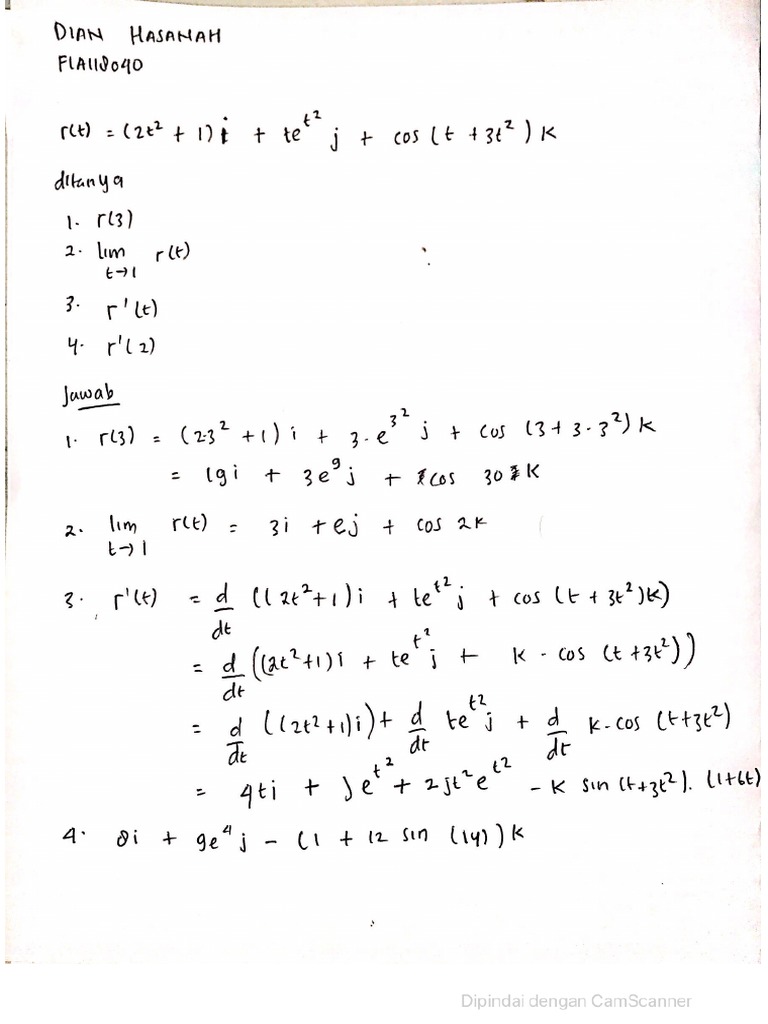 DIAN HASANAH
F1A118040
r(t) = (2t² + 1) i + te^t² j + cos (t + 3t²) k
ditanya
1. r(3)
2. lim t→1 r(t)
3. r'(t)
4. r'(2)
Jawab
1. r(3) = (2.3² + 1) i + 3.e^3² j + cos (3 + 3.3²) k
= 19 i + 3e⁹ j + cos 30 k
2. lim t→1 r(t) = 3i + ej + cos 2k
3. r'(t) = d/dt ((2t²+1) i + te^t² j + cos (t + 3t²) k)
= d/dt ((2t²+1) i + te^t² j + k - cos (t + 3t²))
= d/dt ((2t²+1) i) + d/dt te^t² j + d/dt k - cos (t+3t²)
= 4ti + je^t² + 2jt²e^t² - k sin (t+3t²). (1+6t)
4. 8i + 9e⁴ j - (1 + 12 sin (14)) k
Dipindai dengan CamScanner